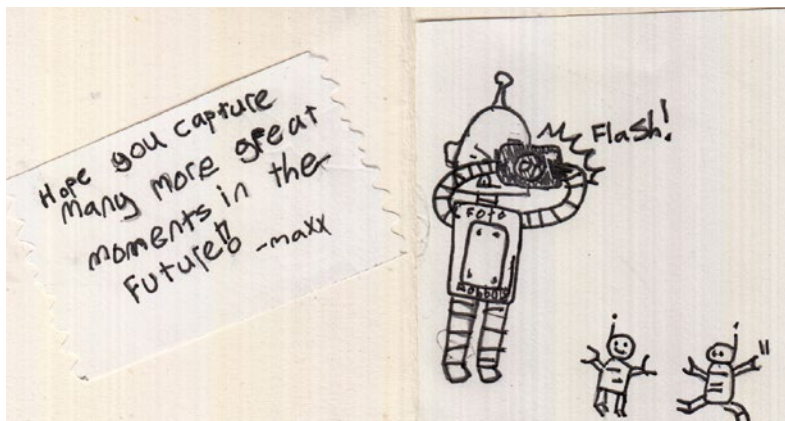 Hope you capture
many more great
moments in the
Future!! -maxx
Flash!
FOTO